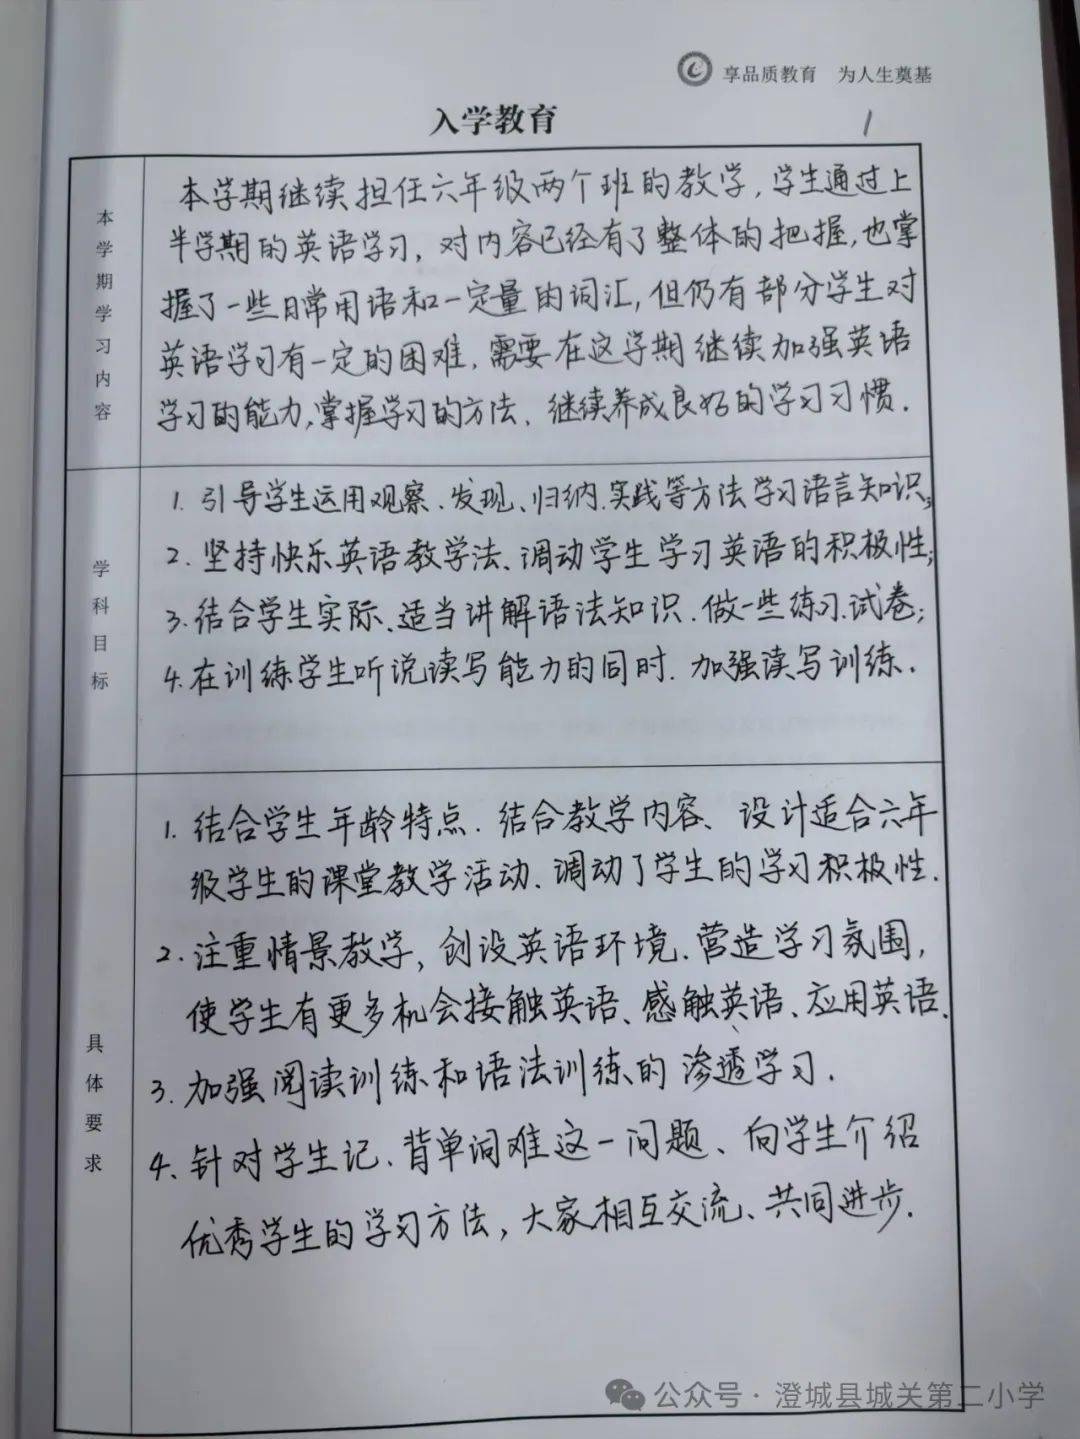 享品质教育 为人生奠基
入学教育
1
本学期学习内容
本学期继续担任六年级两个班的教学,学生通过上
半学期的英语学习,对内容已经有了整体的把握,也掌
握了一些日常用语和一定量的词汇,但仍有部分学生对
英语学习有一定的困难,需要在这学期继续加强英语
学习的能力,掌握学习的方法、继续养成良好的学习习惯.
学科目标
1. 引导学生运用观察、发现、归纳.实践等方法学习语言知识;
2. 坚持快乐英语教学法、调动学生学习英语的积极性;
3. 结合学生实际、适当讲解语法知识.做一些练习.试卷;
4. 在训练学生听说读写能力的同时.加强读写训练.
具体要求
1. 结合学生年龄特点.结合教学内容、设计适合六年
级学生的课堂教学活动、调动了学生的学习积极性.
2. 注重情景教学,创设英语环境.营造学习氛围,
使学生有更多机会接触英语、感触英语、应用英语.
3. 加强阅读训练和语法训练的渗透学习.
4、针对学生记、背单词难这一问题、向学生介绍
优秀学生的学习方法,大家相互交流、共同进步.
公众号·澄城县城关第二小学